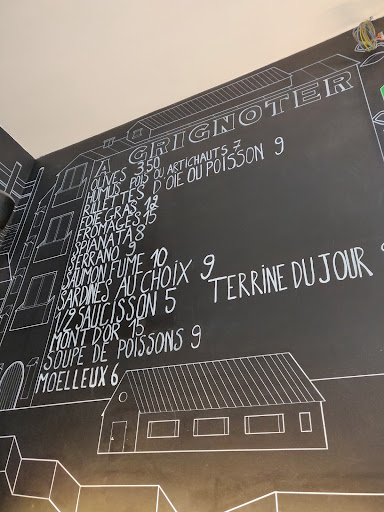 A GRIGNOTER
OLIVES 3,50
HOMUS POIS OU ARTICHAUTS 7
RILLETTES D'OIE OU POISSON 9
FOIE GRAS 18
FROMAGES 15
SPIANATA 8
SERRANO 9
SAUMON FUME 10
SARDINES AU CHOIX 9
1/2 SAUCISSON 5
TERRINE DU JOUR
MONT D'OR 15
SOUPE DE POISSONS 9
MOELLEUX 6